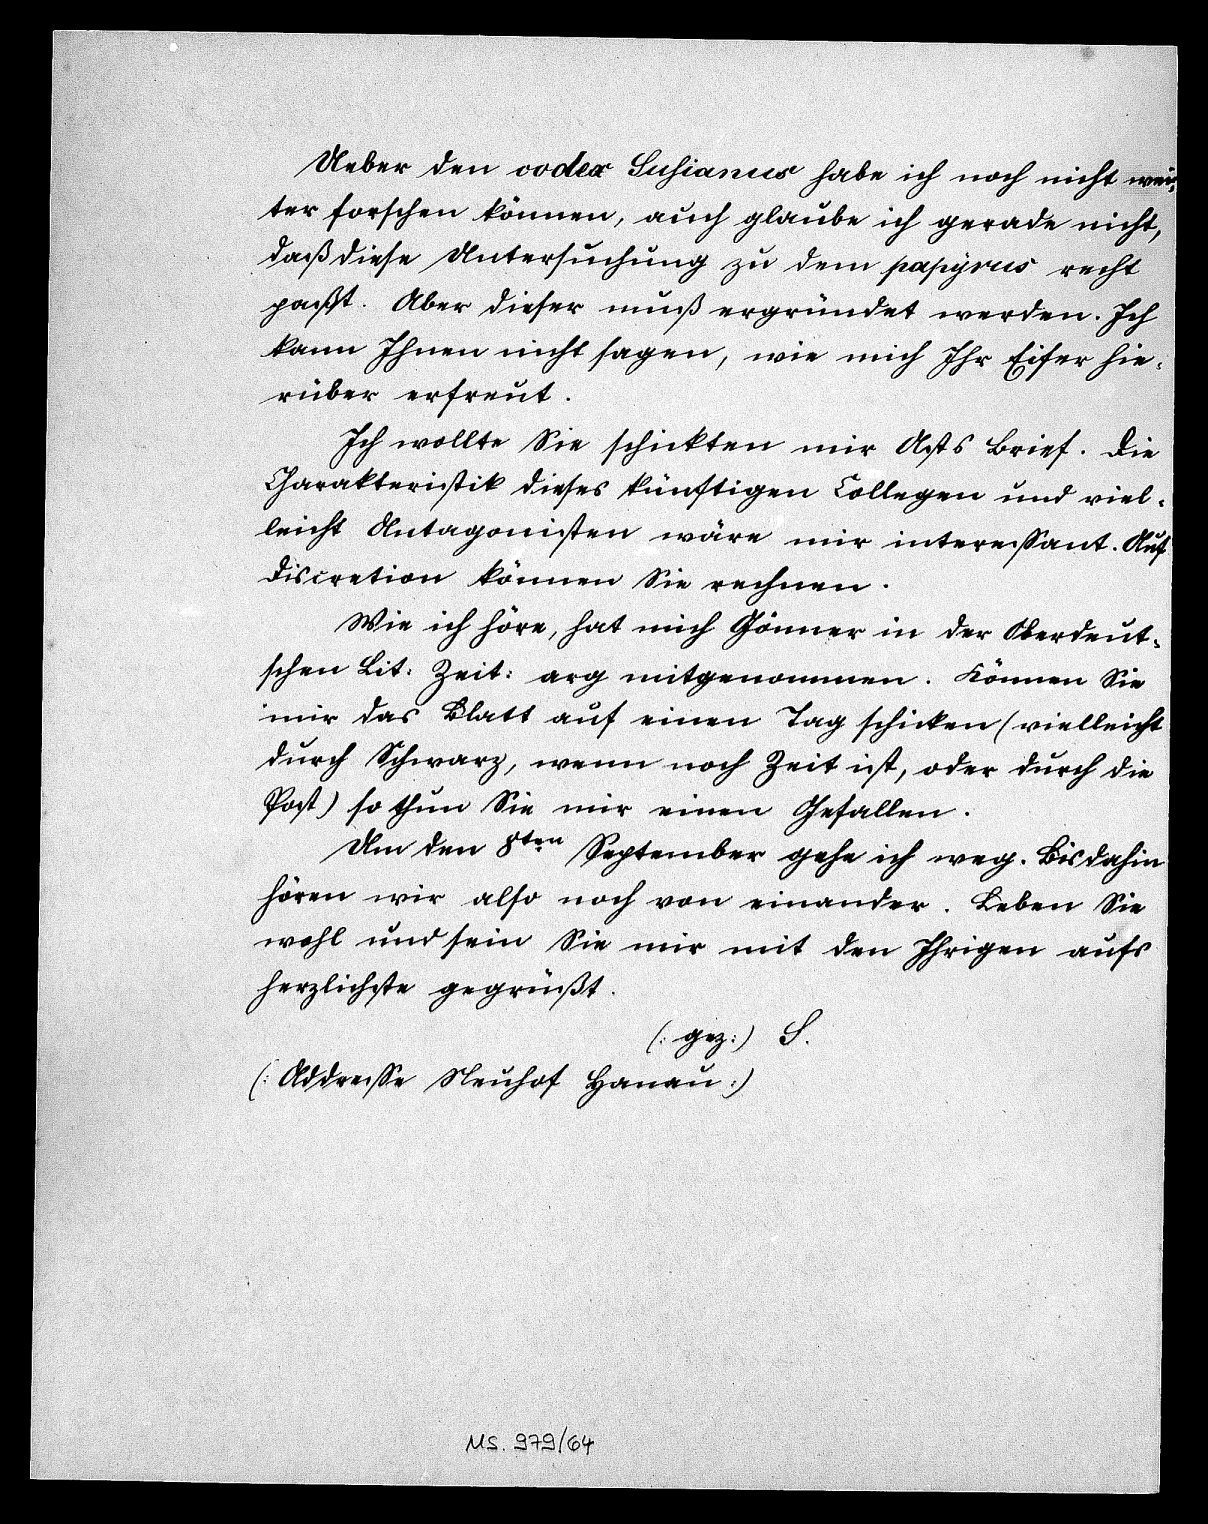 Ueber den codex Susianus habe ich noch nicht wei-
ter forschen können, auch glaube ich gerade nicht,
daß diese Untersuchung zu dem papÿrus recht
paßt. Aber dieser muß ergründet werden. Ich
kann Ihnen nicht sagen, wie mich Ihr Eifer hie-
rüber erfreut.
Ich wollte Sie schickten mir Asts Brief. Die
Charakteristik dieses künftigen Collegen und viel-
leicht Antagonisten wäre mir interessant. Auf
Discretion können Sie rechnen.
Wie ich höre, hat mich Gönner in der Oberdeut-
schen Lit: Zeit: arg mitgenommen. Können Sie
mir das Blatt auf einen Tag schicken (vielleicht
durch Schwarz, wenn noch Zeit ist, oder durch die
Post) so thun Sie mir einen Gefallen.
Um den 8ten September gehe ich weg. Bis dahin
hören wir also noch von einander. Leben Sie
wohl und sein Sie mir mit den Ihrigen aufs
herzlichste gegrüßt.
(: gez:) S.
(: Addresse Neuhof Hanau:)
MS. 979/64